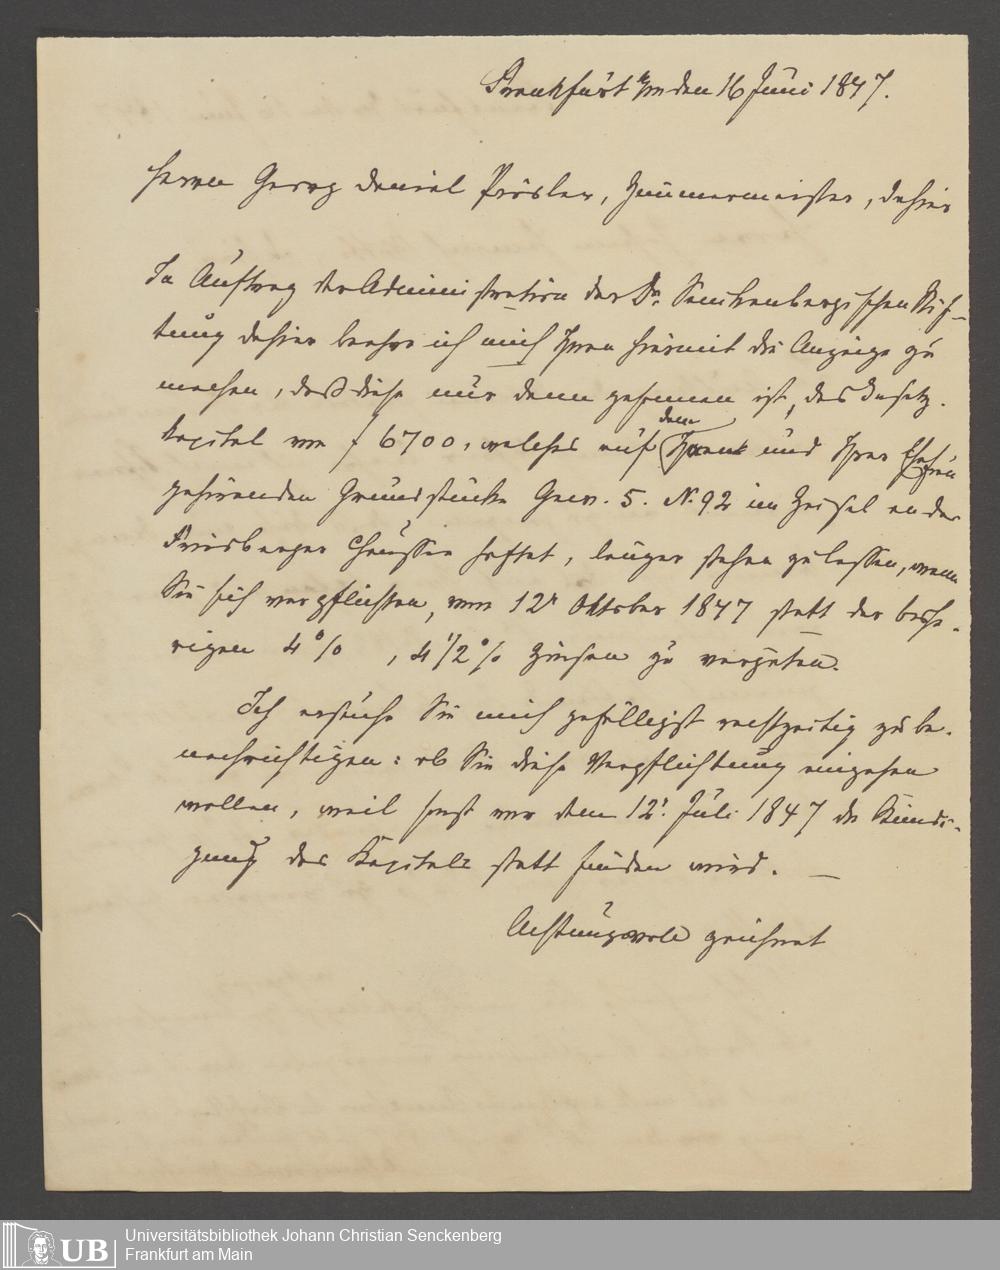 Frankfurt a/m den 16 Juni 1847.
Herrn Georg Daniel Prösler, Zimmermeister, dahier
In Auftrag der Administration der Dr. Senckenbergischen Stif-
tung dahier beehre ich mich Ihnen hiermit die Anzeige zu
machen, daß diese nur dann gesonnen ist, das Insatz-
kapital von f 6700, welches auf dem Ihnen und Ihrer Ehefrau
gehörenden Grundstücke Gew. 5. N. 92 im an der
Friedberger Chaussee haftet, länger stehen zu lassen, wenn
Sie sich verpflichten, vom 12r Oktober 1847 statt der bishe-
rigen 4 %, 4 1/2 % Zinsen zu vergüten.
Ich ersuche Sie mich gefälligst rechtzeitig zu be-
nachrichtigen: ob Sie diese Verpflichtung eingehen
wollen, weil sonst vor dem 12t Juli 1847 die Kündi-
gung des Kapitals statt finden wird. —
Achtungsvoll zeichnet
UB
Universitätsbibliothek Johann Christian Senckenberg
Frankfurt am Main